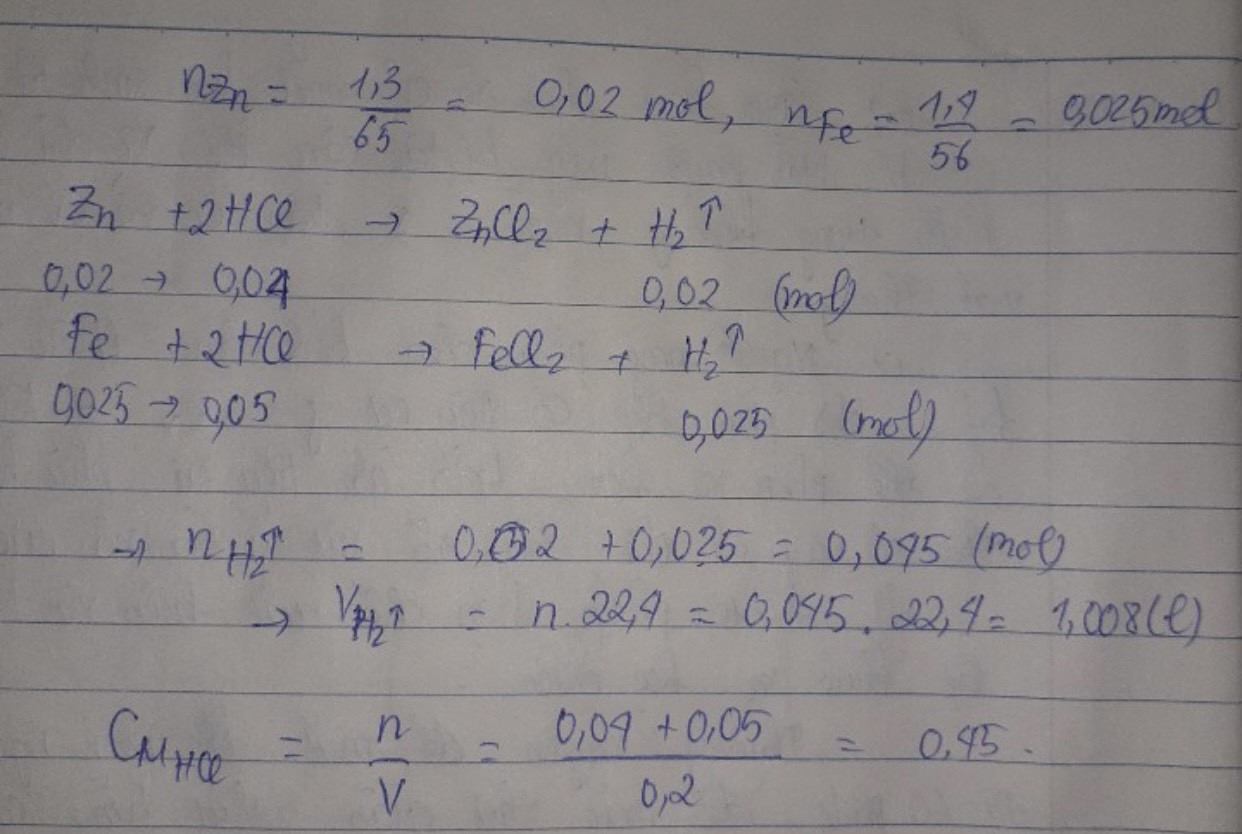 nZn = 1,3/65 = 0,02 mol, nFe = 1,4/56 = 0,025mol
Zn + 2HCl → ZnCl₂ + H₂↑
0,02 → 0,04 0,02 (mol)
Fe + 2HCl → FeCl₂ + H₂↑
0,025 → 0,05 0,025 (mol)
→ nH₂↑ = 0,02 + 0,025 = 0,045 (mol)
→ VH₂↑ = n.22,4 = 0,045.22,4 = 1,008(l)
CMHCl = n/V = 0,04 + 0,05/0,2 = 0,45.